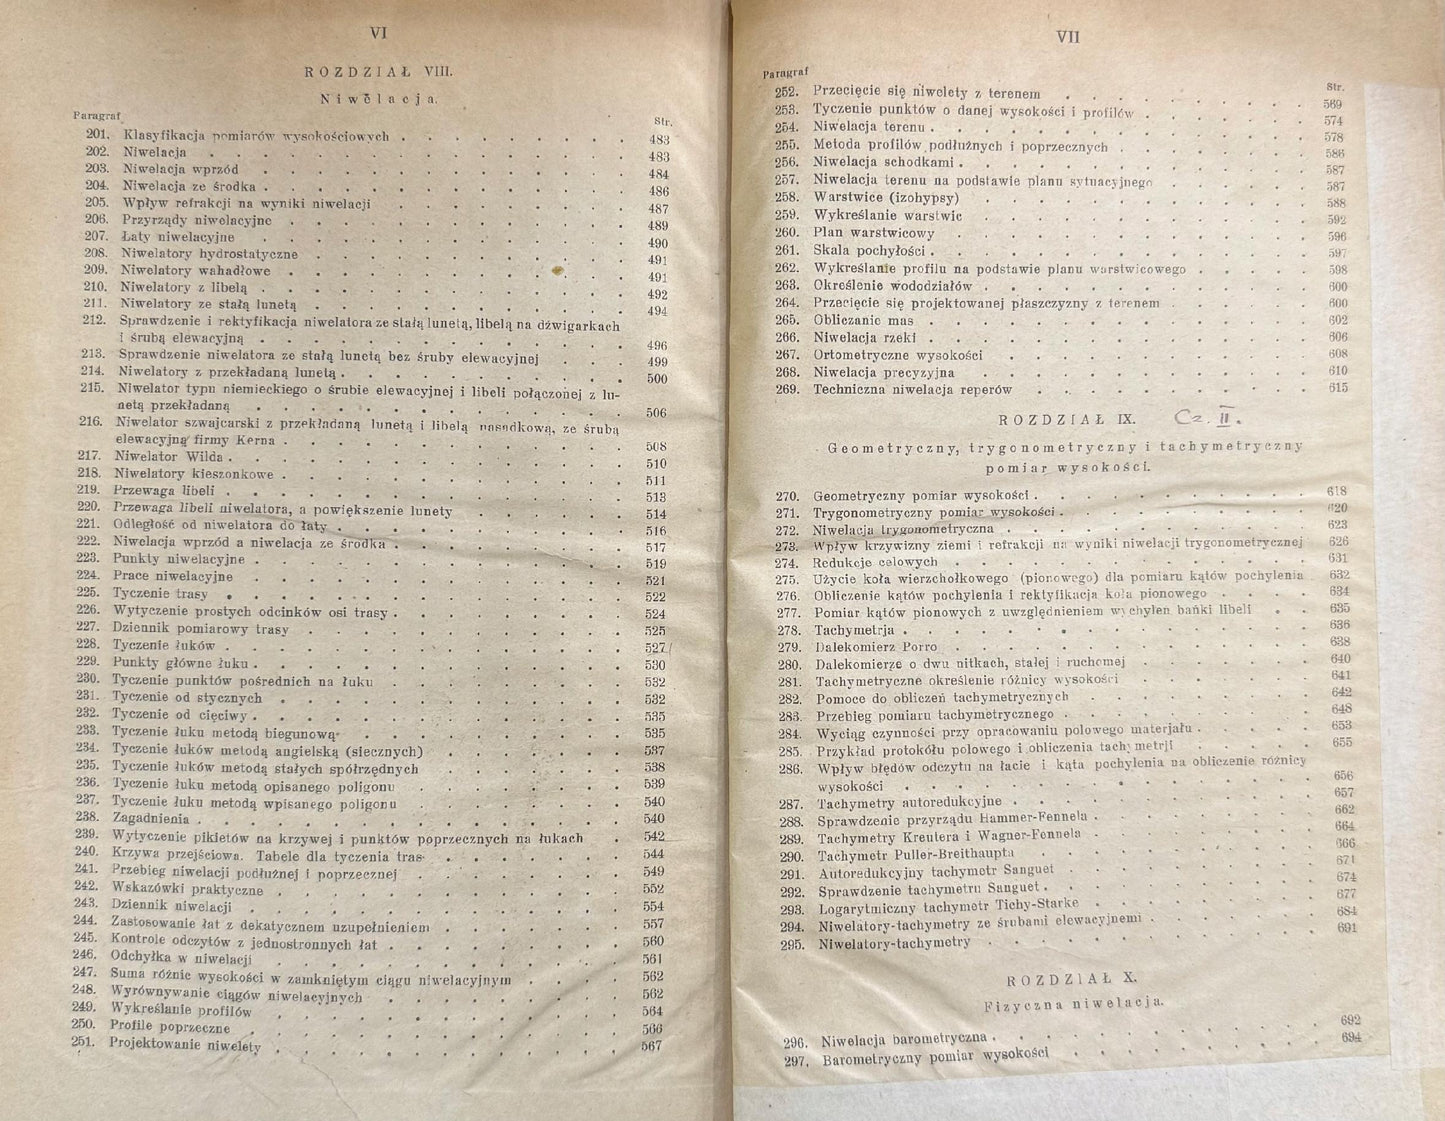 VI
ROZDZIAŁ VIII.
Niwelacja.
Paragraf Str.
201. Klasyfikacja pomiarów wysokościowych . . . . . . . . 483
202. Niwelacja . . . . . . . . 483
203. Niwelacja wprzód . . . . . . . . 484
204. Niwelacja ze środka . . . . . . . . 486
205. Wpływ refrakcji na wyniki niwelacji . . . . . . . . 487
206. Przyrządy niwelacyjne . . . . . . . . 489
207. Łaty niwelacyjne . . . . . . . . 490
208. Niwelatory hydrostatyczne . . . . . . . . 491
209. Niwelatory wahadłowe . . . . . . . . 491
210. Niwelatory z libelą . . . . . . . . 492
211. Niwelatory ze stałą lunetą . . . . . . . . 494
212. Sprawdzenie i rektyfikacja niwelatora ze stałą lunetą, libelą na dźwigarkach
i śrubą elewacyjną . . . . . . . . 496
213. Sprawdzenie niwelatora ze stałą lunetą bez śruby elewacyjnej . . . 499
214. Niwelatory z przekładaną lunetą . . . . . . . . 500
215. Niwelator typu niemieckiego o śrubie elewacyjnej i libeli połączonej z lu-
netą przekładaną . . . . . . . . 506
216. Niwelator szwajcarski z przekładaną lunetą i libelą nasadkową, ze śrubą
elewacyjną firmy Kerna . . . . . . . . 508
217. Niwelator Wilda . . . . . . . . 510
218. Niwelatory kieszonkowe . . . . . . . . 511
219. Przewaga libeli . . . . . . . . 513
220. Przewaga libeli niwelatora, a powiększenie lunety . . . . . . 514
221. Odległość od niwelatora do łaty . . . . . . . . 516
222. Niwelacja wprzód a niwelacja ze środka . . . . . . . . 517
223. Punkty niwelacyjne . . . . . . . . 519
224. Prace niwelacyjne . . . . . . . . 521
225. Tyczenie trasy . . . . . . . . 522
226. Wytyczenie prostych odcinków osi trasy . . . . . . . . 524
227. Dziennik pomiarowy trasy . . . . . . . . 525
228. Tyczenie łuków . . . . . . . . 527
229. Punkty główne łuku . . . . . . . . 530
230. Tyczenie punktów pośrednich na łuku . . . . . . . . 532
231. Tyczenie od stycznych . . . . . . . . 532
232. Tyczenie od cięciwy . . . . . . . . 535
233. Tyczenie łuku metodą biegunową . . . . . . . . 535
234. Tyczenie łuków metodą angielską (siecznych) . . . . . . . 537
235. Tyczenie łuków metodą stałych spółrzędnych . . . . . . . 538
236. Tyczenie łuku metodą opisanego poligonu . . . . . . . . 539
237. Tyczenie łuku metodą wpisanego poligonu . . . . . . . . 540
238. Zagadnienia . . . . . . . . 540
239. Wytyczenie pikietów na krzywej i punktów poprzecznych na łukach . 542
240. Krzywa przejściowa. Tabele dla tyczenia tras . . . . . . . 544
241. Przebieg niwelacji podłużnej i poprzecznej . . . . . . . . 549
242. Wskazówki praktyczne . . . . . . . . 552
243. Dziennik niwelacji . . . . . . . . 554
244. Zastosowanie łat z dekatycznem uzupełnieniem . . . . . . . 557
245. Kontrole odczytów z jednostronnych łat . . . . . . . . 560
246. Odchyłka w niwelacji . . . . . . . . 561
247. Suma różnic wysokości w zamkniętym ciągu niwelacyjnym . . . . 562
248. Wyrównywanie ciągów niwelacyjnych . . . . . . . . 562
249. Wykreślanie profilów . . . . . . . . 564
250. Profile poprzeczne . . . . . . . . 566
251. Projektowanie niwelety . . . . . . . . 567
VII
Paragraf Str.
252. Przecięcie się niwelety z terenem . . . . . . . . 569
253. Tyczenie punktów o danej wysokości i profilów . . . . . . 574
254. Niwelacja terenu . . . . . . . . 578
255. Metoda profilów podłużnych i poprzecznych . . . . . . . 586
256. Niwelacja schodkami . . . . . . . . 587
257. Niwelacja terenu na podstawie planu sytuacyjnego . . . . . . 587
258. Warstwice (izohypsy) . . . . . . . . 588
259. Wykreślanie warstwic . . . . . . . . 592
260. Plan warstwicowy . . . . . . . . 596
261. Skala pochyłości . . . . . . . . 597
262. Wykreślanie profilu na podstawie planu warstwicowego . . . . . 598
263. Określenie wododziałów . . . . . . . . 600
264. Przecięcie się projektowanej płaszczyzny z terenem . . . . . . 600
265. Obliczanie mas . . . . . . . . 602
266. Niwelacja rzeki . . . . . . . . 606
267. Ortometryczne wysokości . . . . . . . . 608
268. Niwelacja precyzyjna . . . . . . . . 610
269. Techniczna niwelacja reperów . . . . . . . . 615
ROZDZIAŁ IX. Cz. II.
Geometryczny, trygonometryczny i tachymetryczny
pomiar wysokości.
270. Geometryczny pomiar wysokości . . . . . . . . 618
271. Trygonometryczny pomiar wysokości . . . . . . . . 620
272. Niwelacja trygonometryczna . . . . . . . . 623
273. Wpływ krzywizny ziemi i refrakcji na wyniki niwelacji trygonometrycznej 626
274. Redukcje celowych . . . . . . . . 631
275. Użycie koła wierzchołkowego (pionowego) dla pomiaru kątów pochylenia . 632
276. Obliczenie kątów pochylenia i rektyfikacja koła pionowego . . . . 634
277. Pomiar kątów pionowych z uwzględnieniem wychyleń bańki libeli . . 635
278. Tachymetrja . . . . . . . . 636
279. Dalekomierz Porro . . . . . . . . 638
280. Dalekomierze o dwu nitkach, stałej i ruchomej . . . . . . . 640
281. Tachymetryczne określenie różnicy wysokości . . . . . . . 641
282. Pomoce do obliczeń tachymetrycznych . . . . . . . . 642
283. Przebieg pomiaru tachymetrycznego . . . . . . . . 648
284. Wyciąg czynności przy opracowaniu polowego materjału . . . . . 653
285. Przykład protokółu polowego i obliczenia tachymetrji . . . . . 655
286. Wpływ błędów odczytu na łacie i kąta pochylenia na obliczenie różnicy
wysokości . . . . . . . . 656
287. Tachymetry autoredukcyjne . . . . . . . . 657
288. Sprawdzenie przyrządu Hammer-Fennela . . . . . . . . 662
289. Tachymetry Kreutera i Wagner-Fennela . . . . . . . . 664
290. Tachymetr Puller-Breithaupta . . . . . . . . 666
291. Autoredukcyjny tachymetr Sanguet . . . . . . . . 671
292. Sprawdzenie tachymetru Sanguet . . . . . . . . 674
293. Logarytmiczny tachymetr Tichy-Starke . . . . . . . . 677
294. Niwelatory-tachymetry ze śrubami elewacyjnemi . . . . . . . 684
295. Niwelatory-tachymetry . . . . . . . . 691
ROZDZIAŁ X.
Fizyczna niwelacja.
296. Niwelacja barometryczna . . . . . . . . 692
297. Barometryczny pomiar wysokości . . . . . . . . 694